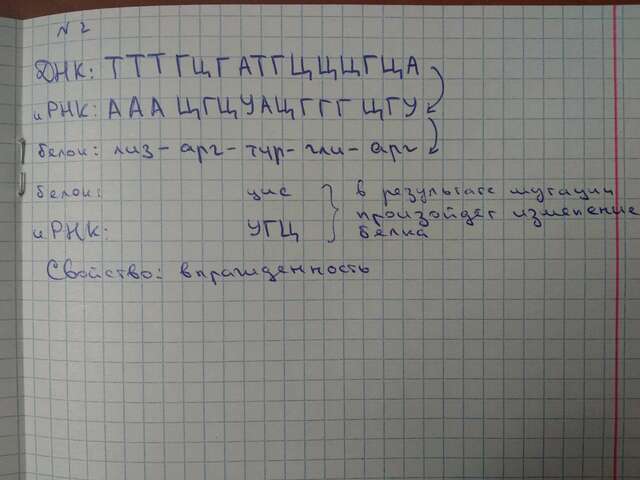 N 2
ДНК: ТТТГЦГАТГЦЦЦГЦА
иРНК: ААА ЦГЦУАЦГГГ ЦГУ
белок: лиз- арг- тир- гли- арг
белок: цис } в результате мутации
произойдет изменение
иРНК: УГЦ белка
Свойство: вырожденность